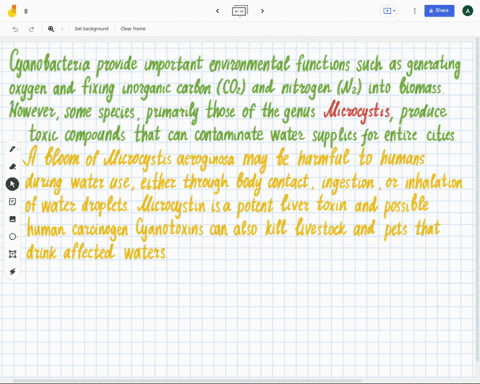 8
Share
A
Set background
Clear frame
Cyanobacteria provide important environmental functions such as generating
oxygen and fixing inorganic carbon (CO₂) and nitrogen (N₂) into biomass
However, some species, primarily those of the genus Microcystis, produce
toxic compounds that can contaminate water supplies for entire cities
A bloom of Microcystis aeruginosa may be harmful to humans
during water use, either through body contact, ingestion, or inhalation
of water droplets Microcystin is a potent liver toxin and possible
human carcinogen Cyanotoxins can also kill livestock and pets that
drink affected waters